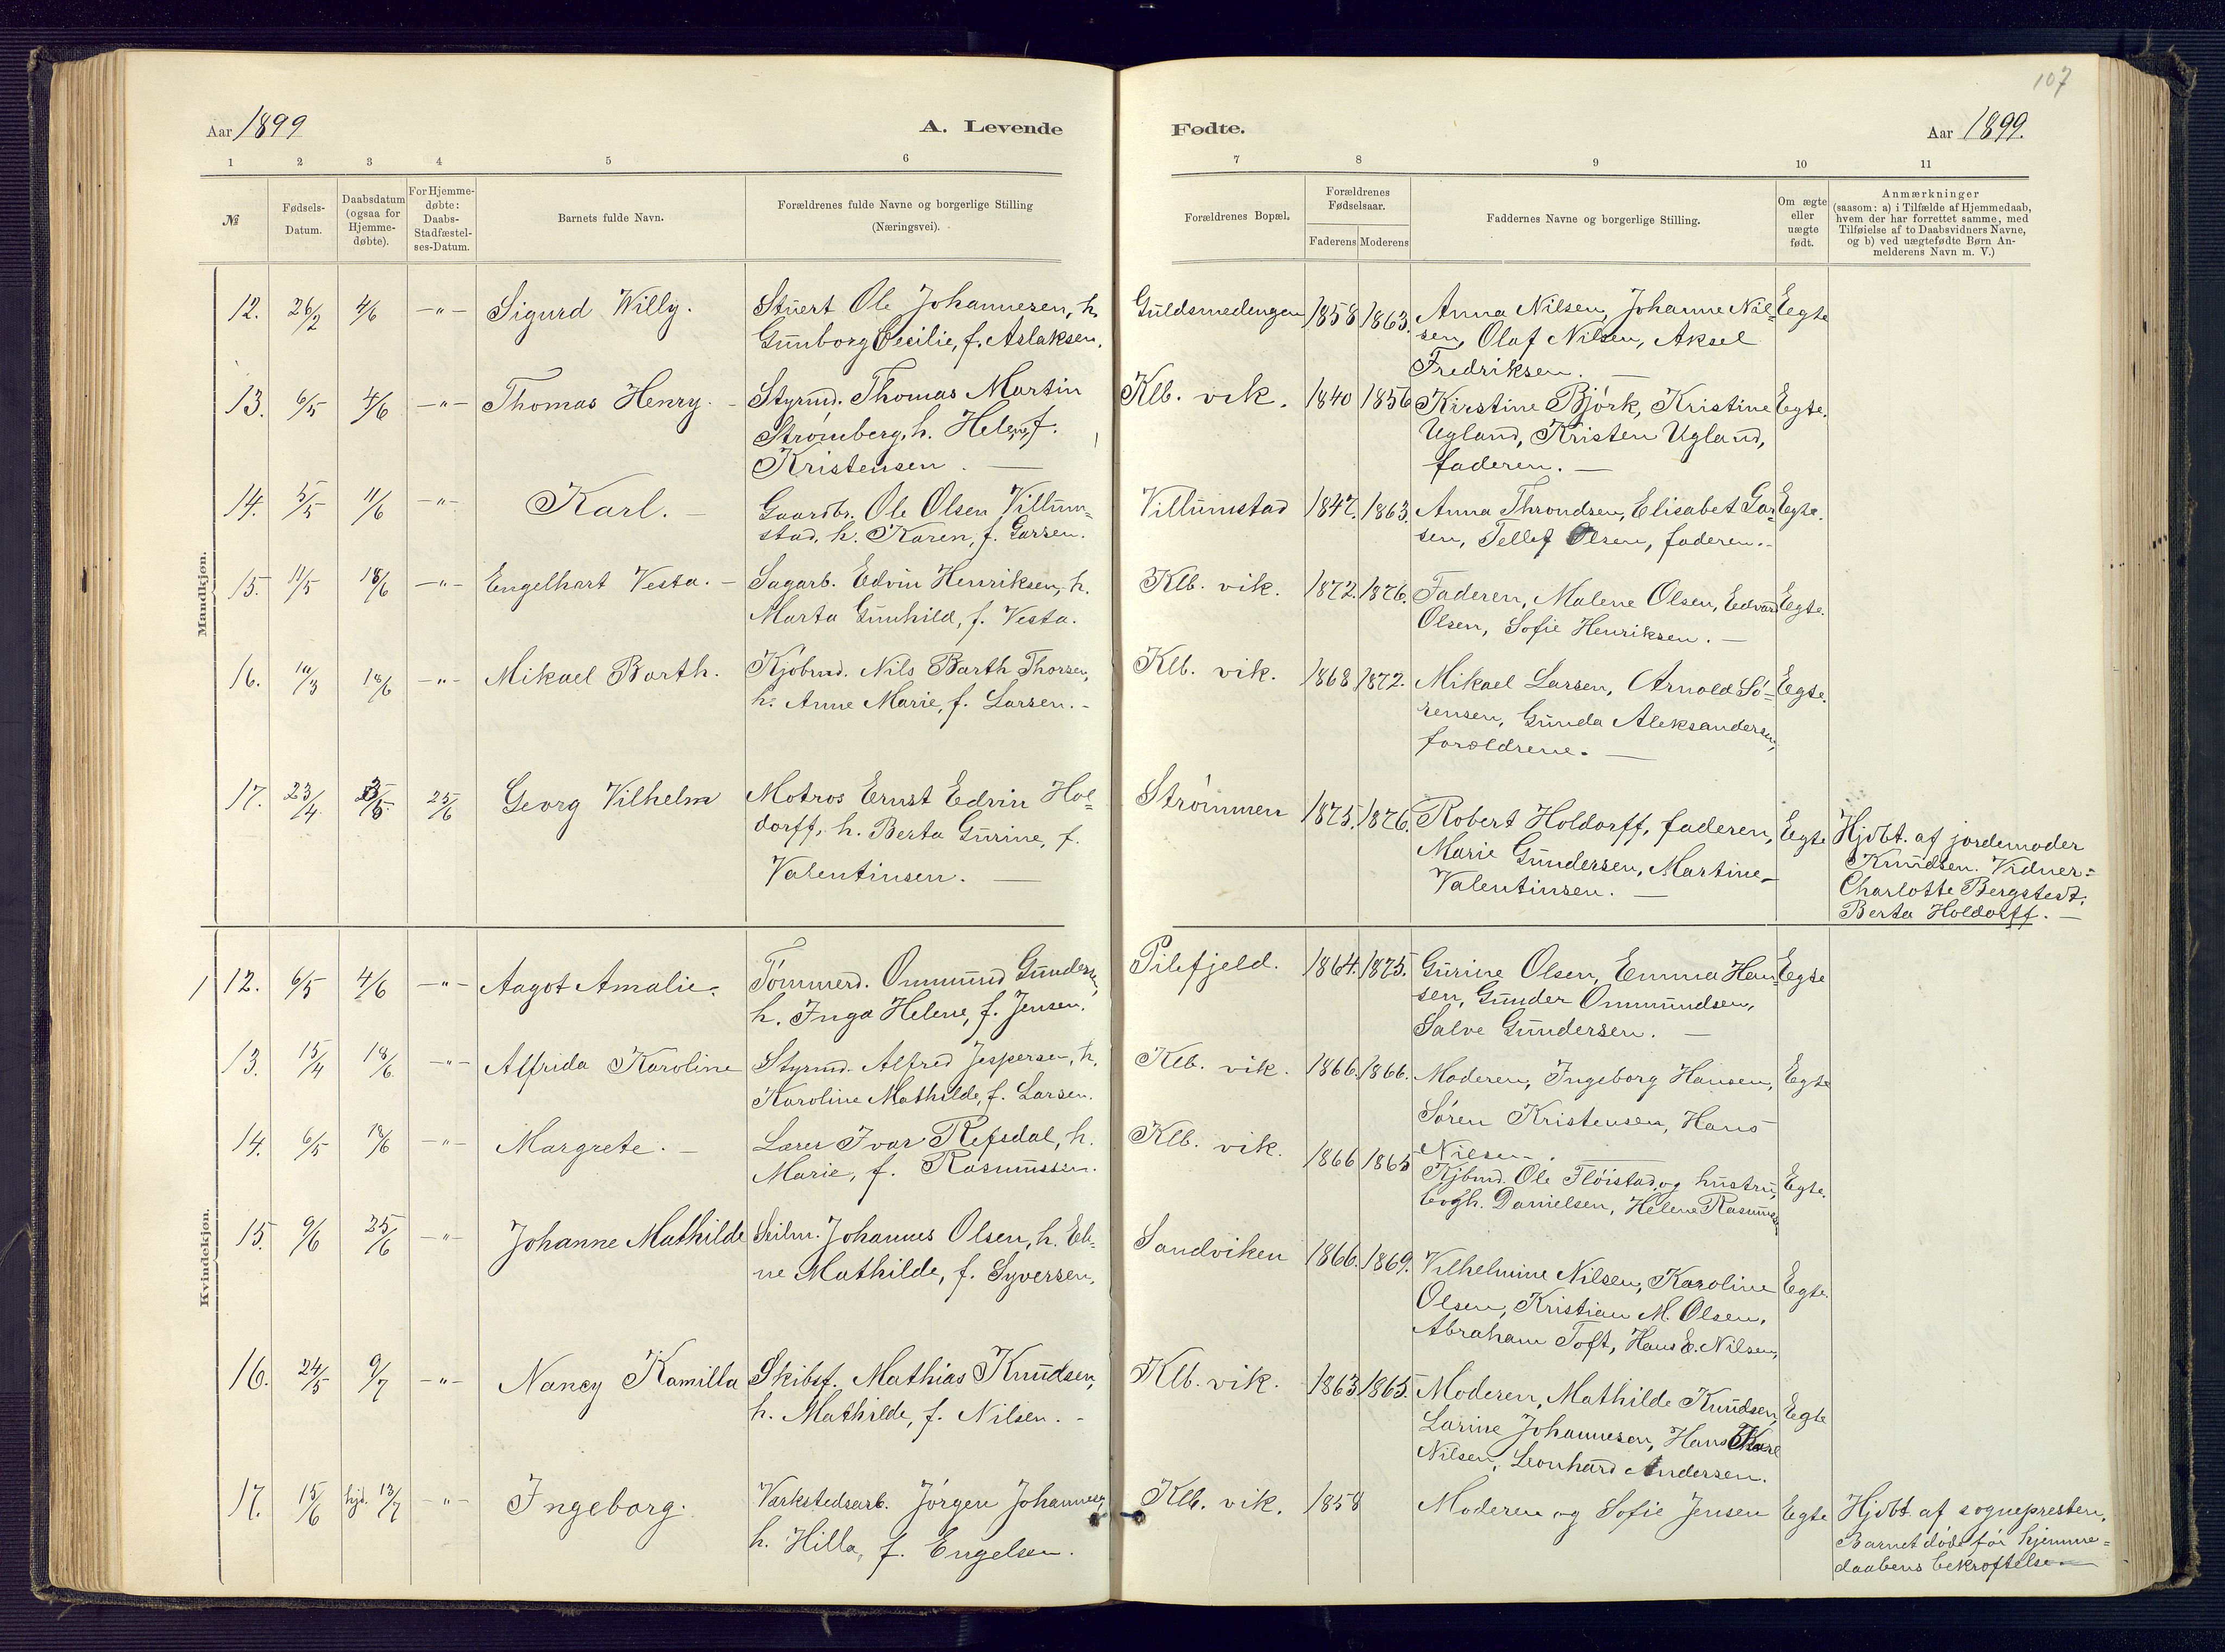 107
Aar 1899
A. Levende
Fødte.
Aar 1899.
1 2 3 4 5 6
7 8 9 10 11
№
Fødsels-
Datum.
Daabsdatum
(ogsaa for
Hjemme-
døbte).
For Hjemme-
døbte:
Daabs-
Stadfæstel-
ses-Datum.
Barnets fulde Navn.
Forældrenes fulde Navne og borgerlige Stilling
(Næringsvei).
Forældrenes Bopæl.
Forældrenes
Fødselsaar.
Faderens Moderens
Faddernes Navne og borgerlige Stilling.
Om ægte
eller
uægte
født.
Anmærkninger
(saasom: a) i Tilfælde af Hjemmedaab,
hvem der har forrettet samme, med
Tilføielse af to Daabsvidners Navne,
og b) ved uægtefødte Børn An-
melderens Navn m. V.)
Mandkjøn.
12. 26/2 4/6 -"- Sigurd Willy. Stuert Ole Johannesen, h.
Gunborg Cecilie, f. Aslaksen.
Guldsmedengen 1858 1863. Anna Nilsen, Johanne Nil= Egte
sen, Olaf Nilsen, Aksel
Fredriksen. —
13. 6/5 4/6 -"- Thomas Henry. - Styrmd. Thomas Martin
Strømberg, h. Helene, f.
Kristensen. —
Klb. vik. 1840 1856 Kirstine Bjørk, Kristine Egte.
Ugland, Kristen Ugland,
faderen. —
14. 5/5 11/6 -"- Karl. - Gaardbr. Ole Olsen Villum=
stad, h. Karen, f. Garsen.
Villumstad 1847. 1863. Anna Throndsen, Elisabet Gar= Egte.
sen, Tellef Olsen, faderen. -
15. 11/5 18/6 -"- Engelhart Vesta. - Sagarb. Edvin Henriksen, h.
Marta Gunhild, f. Vesta.
Klb. vik. 1872. 1876. Faderen, Malene Olsen, Edvard Egte.
Olsen, Sofie Henriksen. —
16. 10/3 18/6 -"- Mikael Barth. Kjøbmd. Nils Barth Thorsen,
h. Anne Marie, f. Larsen. -
Klb. vik. 1868 1872. Mikael Larsen, Arnold Sø= Egte.
rensen, Gunda Aleksandersen,
forældrene. —
17. 23/4 25/6 Georg Vilhelm Motros Ernst Edvin Hol=
dorff, h. Berta Gurine, f.
Valentinsen. —
Strømmen 1875. 1876. Robert Holdorff, faderen, Egte
Marie Gundersen, Martine
Valentinsen. —
Hjdbt. af jordemoder
Knudsen. Vidner:
Charlotte Bergstedt.
Berta Holdorff. —
Kvindekjøn.
12. 6/5 4/6 -"- Aagot Amalie. Tømmerd. Ommund Gundersen,
h. Inga Helene, f. Jensen.
Pilefjeld. 1864. 1875. Gurine Olsen, Emma Han= Egte
sen, Gunder Ommundsen,
Salve Gundersen. —
13. 15/4 18/6 -"- Alfrida Karoline Styrmd. Alfred Jespersen, h.
Karoline Mathilde, f. Larsen.
Klb. vik. 1866. 1866. Moderen, Ingeborg Hansen, Egte
Søren Kristensen, Hans
Nilsen.
14. 6/5 18/6 -"- Margrete. - Lærer Ivar Refsdal, h.
Marie, f. Rasmussen.
Klb. vik. 1866 1865 Kjbmd. Ole Fløistad og hustru, Egte.
bogh. Danielsen, Helene Rasmussen
15. 9/6 25/6 -"- Johanne Mathilde Seilm. Johannes Olsen, h. Eli=
ne Mathilde, f. Syversen.
Sandviken 1866. 1869. Vilhelmine Nilsen, Karoline Egte.
Olsen, Kristian M. Olsen,
Abraham Toft, Hans E. Nilsen,
16. 24/5 9/7 -"- Nancy Kamilla Skibsf. Mathias Knudsen,
h. Mathilde, f. Nilsen. -
Klb. vik. 1863 1865. Moderen, Mathilde Knudsen, Egte
Larine Johannesen, Hans Karl
Nilsen, Leonhard Andersen.
17. 15/6 hjd. 13/7 -"- Ingeborg. Værkstedsarb. Jørgen Johannesen,
h. Hilla, f. Engelsen.
Klb. vik. 1858 Moderen og Sofie Jensen Egte
Hjdbt. af sognepresten.
Barnet døde før hjemme=
daabens bekræftelse